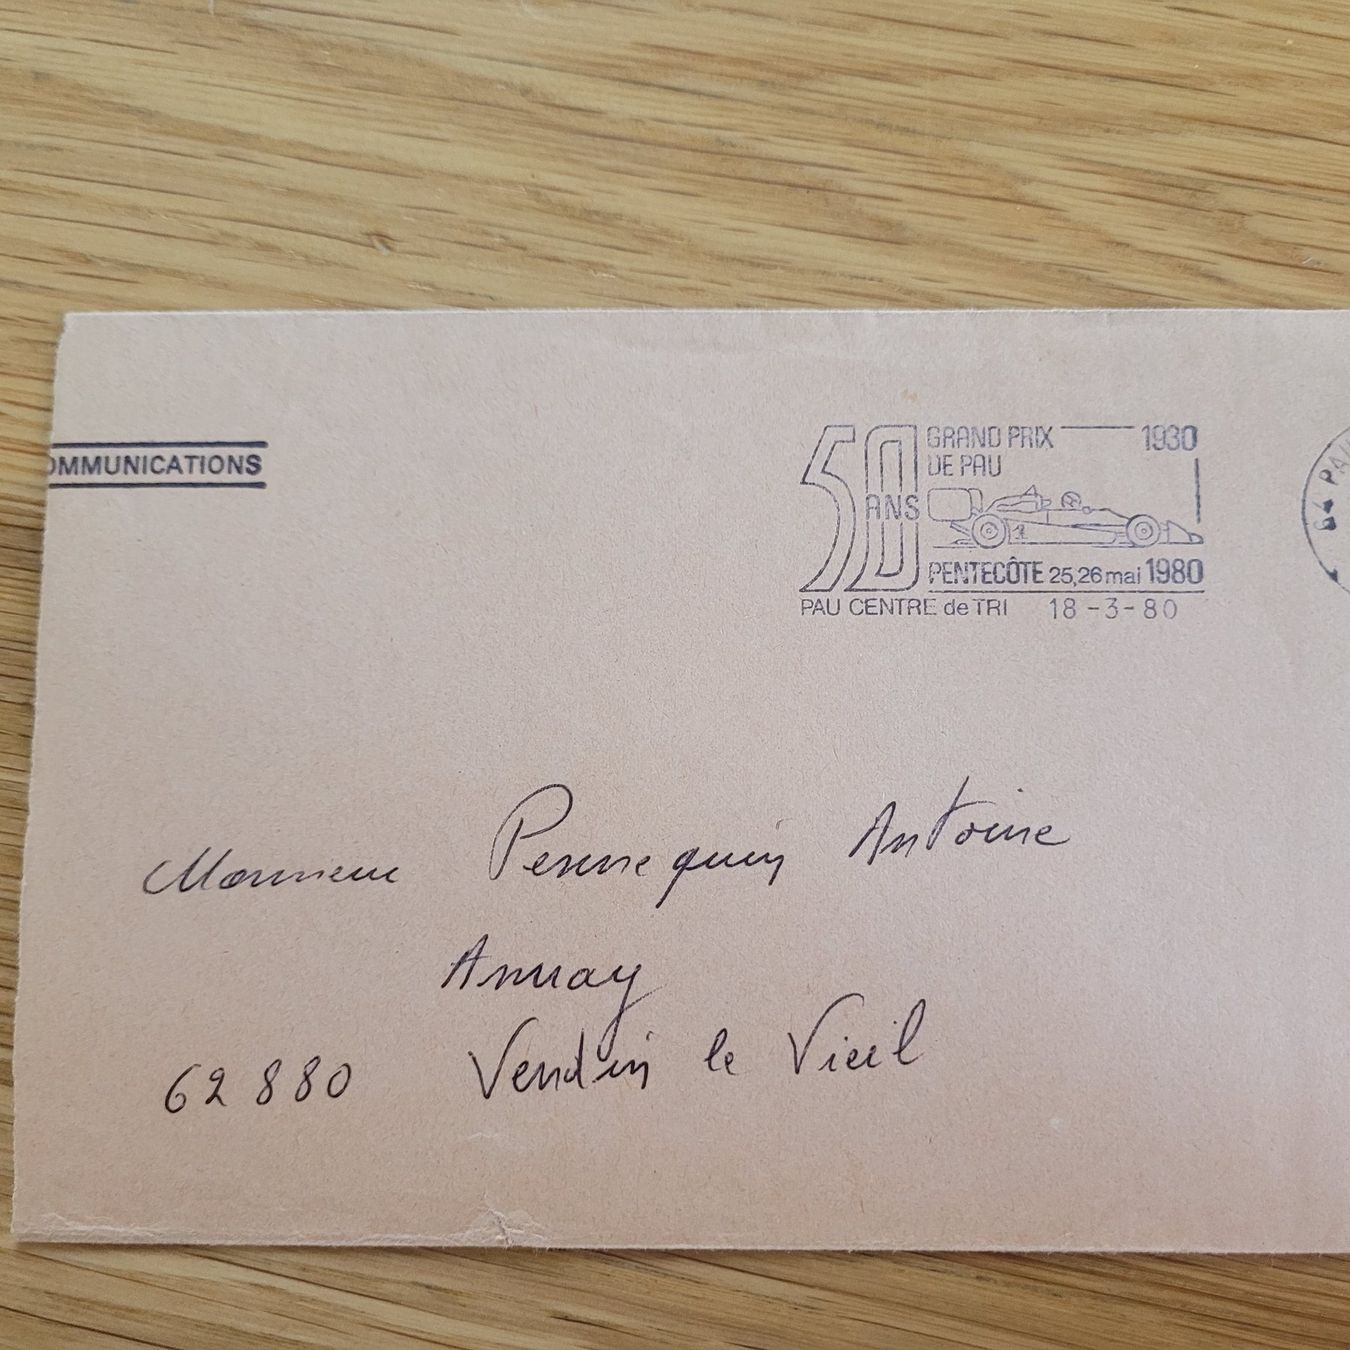 OMMUNICATIONS
50 ANS
GRAND PRIX 1930
DE PAU
PENTECÔTE 25,26 mai 1980
PAU CENTRE de TRI 18-3-80
64 PAU
Monsieur Pennequin Antoine
Annay
62880 Vendin le Vieil